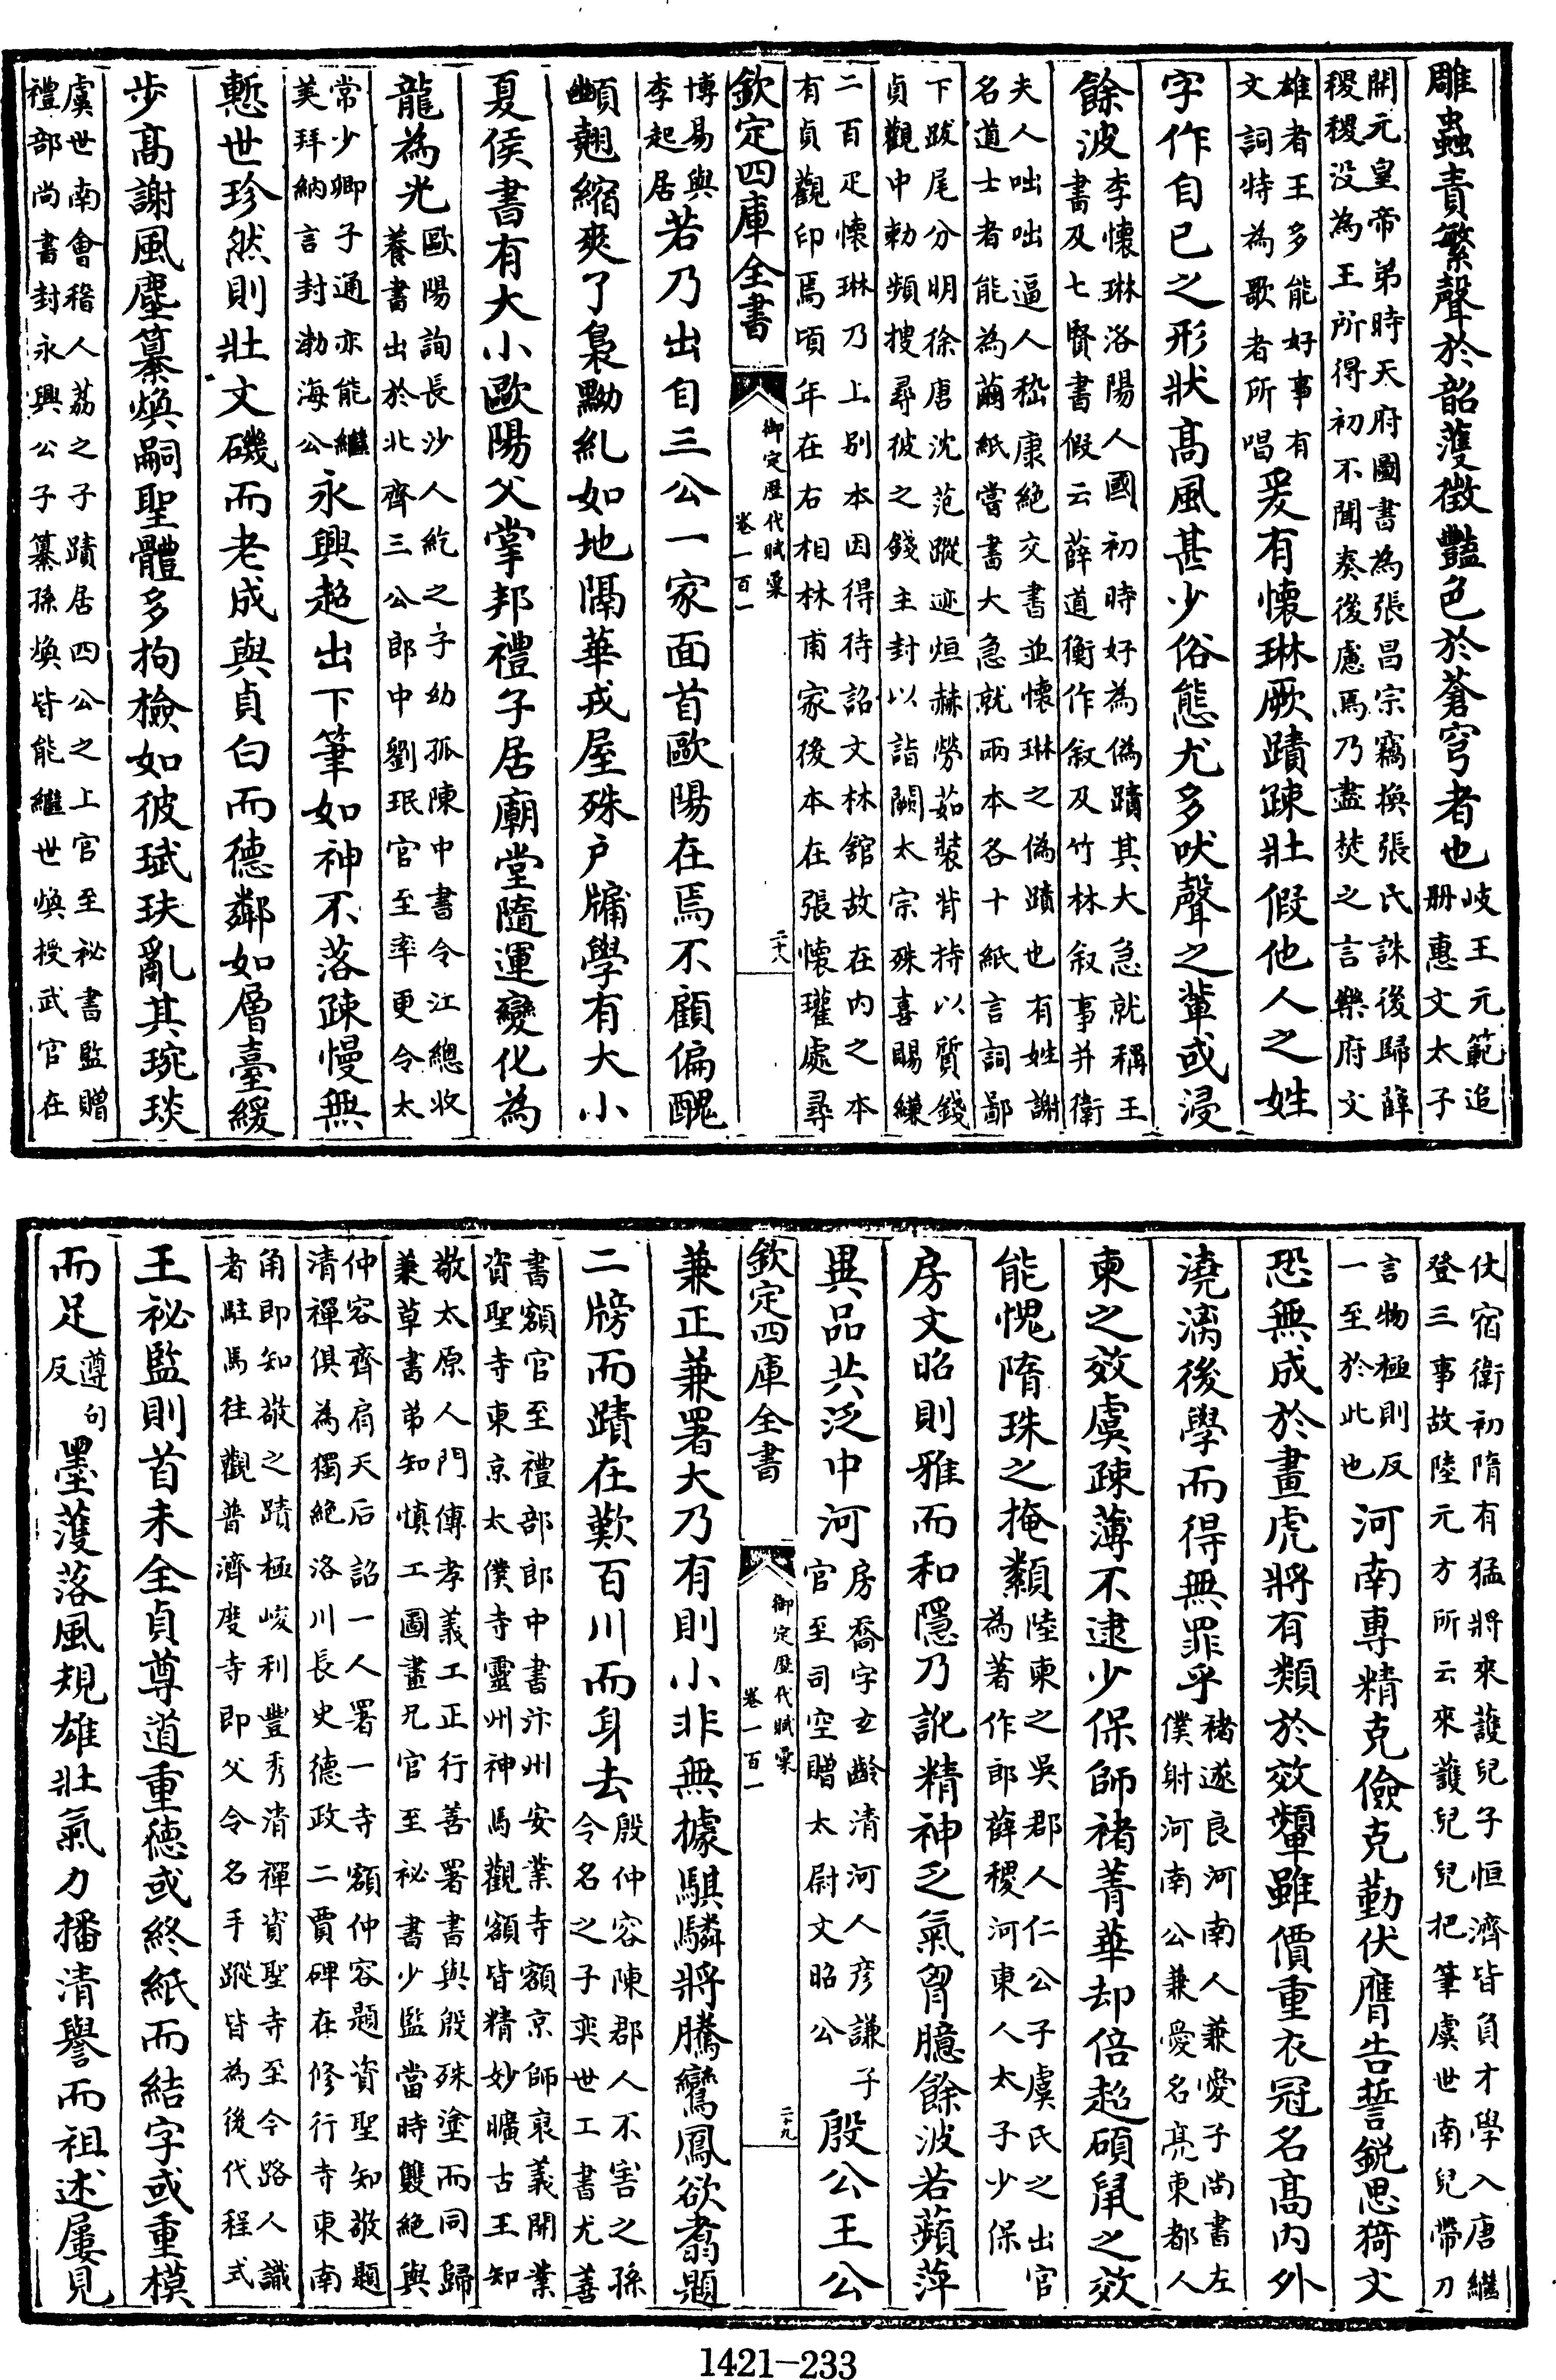 雕蟲責繁聲於韶濩徴豔色於蒼穹者也岐王元範追册惠文太子
開元皇帝弟時天府圖書為張昌宗竊換張氏誅後歸薛
稷稷没為王所得初不聞奏後慮焉乃盡焚之言樂府文
雄者王多能好事有文詞特為歌者所唱爰有懷琳厥蹟疎壯假他人之姓
字作自已之形狀髙風甚少俗態尤多吠聲之輩或浸
餘波李懷琳洛陽人國初時好為偽蹟其大急就稱王書及七賢書假云薛道衡作叙及竹林叙事并衛
夫人咄咄逼人嵇康絶交書並懷琳之偽蹟也有姓謝
名道士者能為繭紙嘗書大急就兩本各十紙言詞鄙
下跋尾分明徐唐沈范蹤迹烜赫勞茹裝背持以質錢
貞觀中勅頻搜尋彼之錢主封以詣闕太宗殊喜賜縑
二百疋懷琳乃上别本因得待詔文林舘故在内之本
有貞觀印焉頃年在右相林甫家後本在張懷瓘處尋
欽定四庫全書 御定歴代賦彙 卷一百一 二十八
博易與李起居若乃出自三公一家面首歐陽在焉不顧偏醜
翹縮爽了梟黝糺如地隔華戎屋殊户牖學有大小
夏侯書有大小歐陽父掌邦禮子居廟堂隨運變化為
龍為光歐陽詢長沙人紇之子幼孤陳中書令江總收養書出於北齊三公郎中劉珉官至率更令太
常少卿子通亦能繼美拜納言封渤海公永興超出下筆如神不落疎慢無
慙世珍然則壯文磯而老成與貞白而德鄰如層臺緩
步髙謝風塵纂煥嗣聖體多拘檢如彼珷玞亂其琬琰
虞世南會稽人荔之子蹟居四公之上官至祕書監贈
禮部尚書封永興公子纂孫煥皆能繼世煥授武官在
仗宿衛初隋有猛將來護兒子恒濟皆負才學入唐繼
登三事故陸元方所云來護兒兒把筆虞世南兒帶刀
言物極則反一至於此也河南專精克儉克勤伏膺告誓鋭思猗文
恐無成於畫虎將有類於效顰雖價重衣冠名髙内外
澆漓後學而得無罪乎褚遂良河南人兼愛子尚書左僕射河南公兼愛名亮東都人
柬之效虞疎薄不逮少保師褚菁華却倍超碩鼠之效
能愧隋珠之掩纇陸柬之吳郡人仁公子虞氏之出官為著作郎薛稷河東人太子少保
房文昭則雅而和隱乃訛精神乏氣胷臆餘波若蘋萍
異品共泛中河房喬字玄齡清河人彦謙子官至司空贈太尉文昭公殷公王公
欽定四庫全書 御定歴代賦彙 卷一百一 二十九
兼正兼署大乃有則小非無據騏驎將騰鸞鳳欲翥題
二牓而蹟在歎百川而身去殷仲容陳郡人不害之孫令名之子奕世工書尤善
書額官至禮部郎中書汴州安業寺額京師裒義開業
資聖寺東京太僕寺靈州神馬觀額皆精妙曠古王知
敬太原人門傳孝義工正行善署書與殷殊塗而同歸
兼草書弟知慎工圖畫兄官至祕書少監當時雙絶與
仲容齊肩天后詔一人署一寺額仲容題資聖知敬題
清禪俱為獨絶洛川長史德政二賈碑在修行寺東南
角即知敬之蹟極峻利豐秀清禪資聖寺至今路人識
者駐馬往觀普濟度寺即父令名手蹤皆為後代程式
王祕監則首末全貞尊道重德或終紙而結字或重模
而足遵句反墨蒦落風規雄壯氣力播清譽而祖述屢見
1421-233